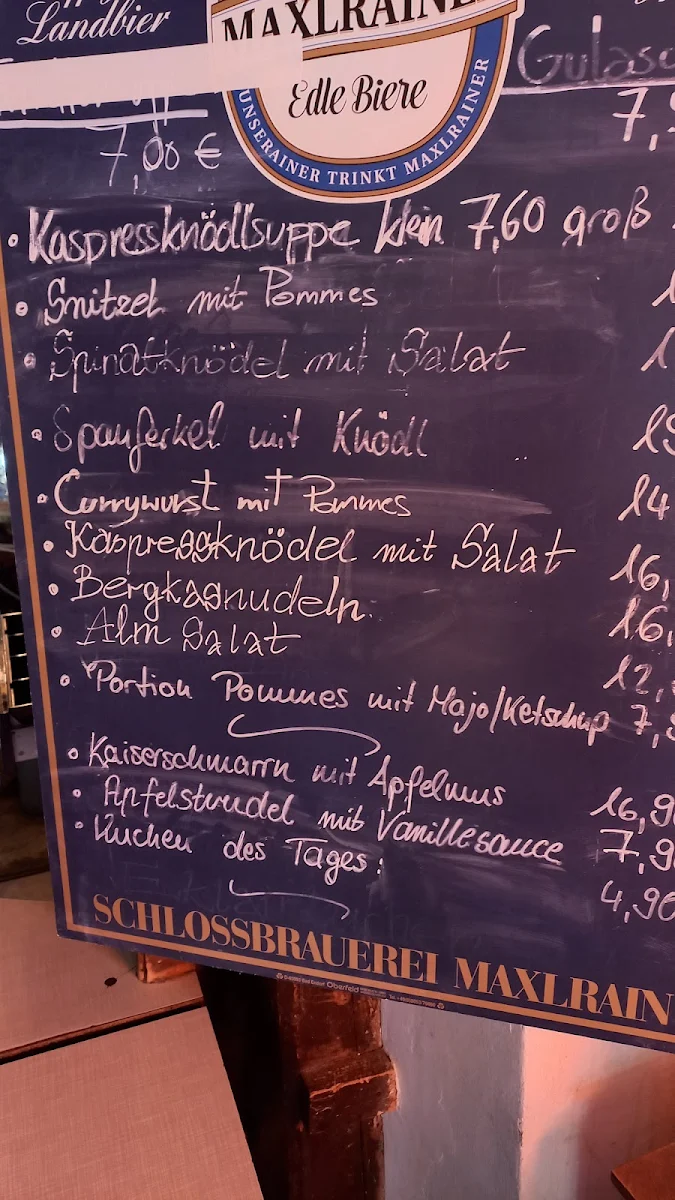 Landbier
MAXLRAINE
Edle Biere
UNSERAINER TRINKT MAXLRAINER
Gulasc
7,00 €
7,
• Kaspressknödlsuppe klein 7,60 groß
• Snitzel mit Pommes 1
• Spinatknödel mit Salat 1
• Spanferkel mit Knödl
• Currywurst mit Pommes 14
• Kaspressknödel mit Salat 16,
• Bergkasnudeln 16,
• Alm Salat 12,
• Portion Pommes mit Majo/Ketschup 7,9
• Kaiserschmarrn mit Apfelmus 16,90
• Apfelstrudel mit Vanillesauce 7,90
• Kuchen des Tages: 4,90
SCHLOSSBRAUEREI MAXLRAIN
Oberfeld